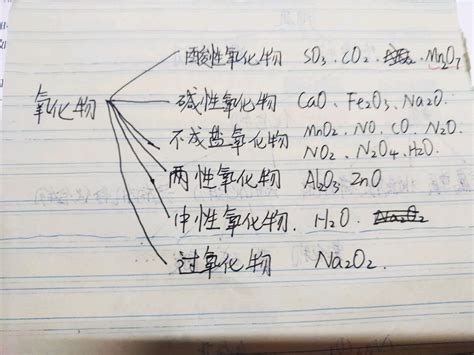 酸性氧化物 SO₃、CO₂、Mn₂O₇
氧化物
碱性氧化物 CaO、Fe₂O₃、Na₂O.
不成盐氧化物 MnO₂、NO、CO、N₂O、
NO₂、N₂O₄、H₂O.
两性氧化物 Al₂O₃、ZnO
中性氧化物. H₂O、Na₂O₂
过氧化物 Na₂O₂.